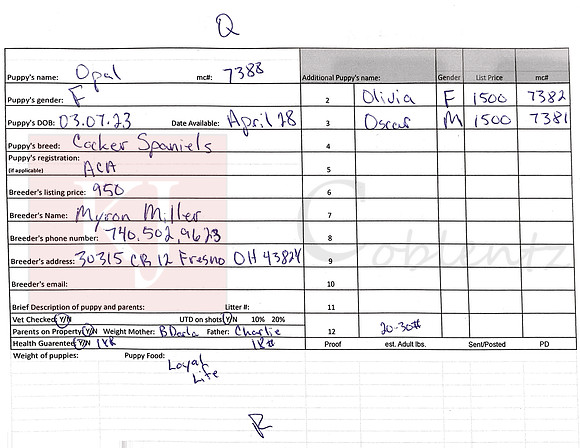 Q
Puppy's name: Opal mc#: 7388 Additional Puppy's name: Gender List Price mc#
Puppy's gender: F 2 Olivia F 1500 7382
Puppy's DOB: 03.07.23 Date Available: April 28 3 Oscar M 1500 7381
Puppy's breed: Cocker Spaniels 4
Puppy's registration: (if applicable) ACA 5
Breeder's listing price: 950 6
Breeder's Name: Myron Miller 7
Breeder's phone number: 740.502.9623 8
Breeder's address: 30315 CR 12 Fresno OH 43824 9
Breeder's email: 10
Brief Description of puppy and parents: Litter#: 11
Vet Checked Y/N UTD on shots Y/N 10% 20%
Parents on Property Y/N Weight Mother: Father: Charlie 12 20-30#
Health Guarentee Y/N 18# Proof est. Adult lbs. Sent/Posted PD
Weight of puppies: Puppy Food: Loyal Life
KJ Coblentz